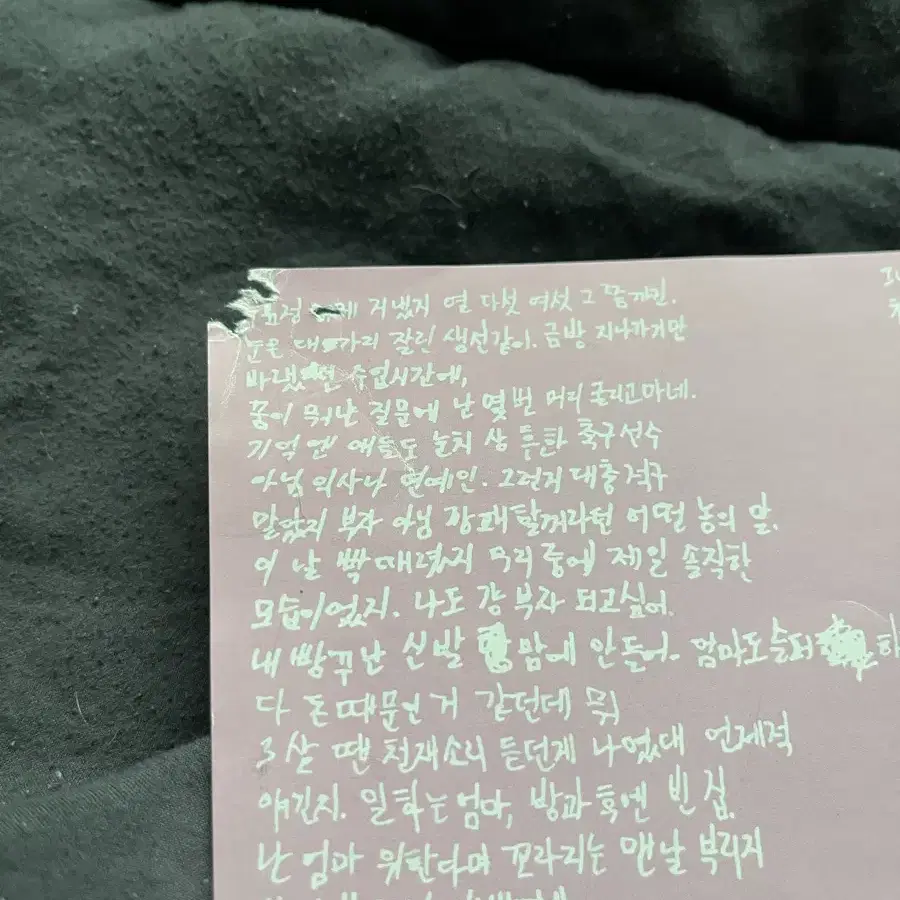 지냈지 열 다섯 여섯 그 쯤까진.
눈은 대가리 잘린 생선같이. 금방 지나가기만
바랬 수업시간에,
꿈이 뭐냔 질문에 난 몇번 머리 굴리고마네.
기억엔 애들도 눈치 상 튼튼한 축구선수
아님 의사나 연예인. 그런거 대충 적구
말았지 부자 아님 깡패 할꺼라던 어떤 놈의 말.
이 날 빡 때렸지 무리 중에 제일 솔직한
모습이었지. 나도 걍 부자 되고싶어.
내 빵꾸난 신발 맘에 안들어. 엄마도 슬퍼 하
다 돈때문인거 같던데 뭐
3살 땐 천재소리 듣던게 나였대 언제적
얘긴지. 일하는 엄마, 방과 후엔 빈 집.
난 엄마 위한다며 꼬라지는 맨날 부리지